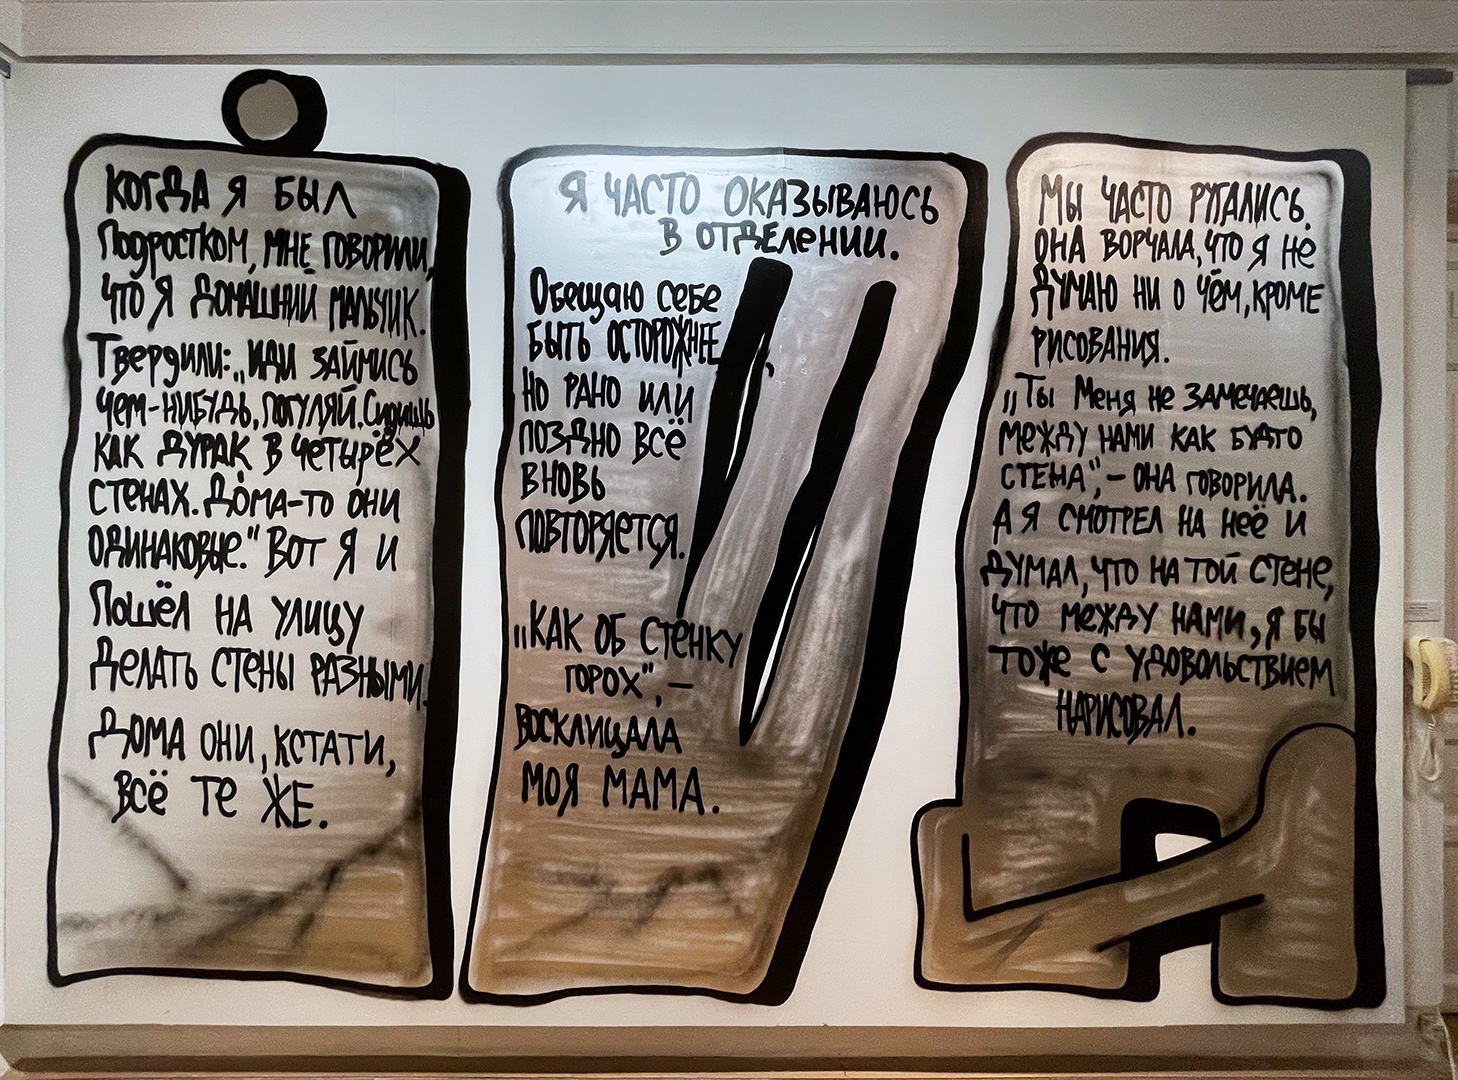 КОГДА Я БЫЛ
ПОДРОСТКОМ, МНЕ ГОВОРИЛИ,
ЧТО Я ДОМАШНИЙ МАЛЬЧИК.
ТВЕРДИЛИ: „ИДИ ЗАЙМИСЬ
ЧЕМ-НИБУДЬ, ПОГУЛЯЙ. СИДИШЬ
КАК ДУРАК В ЧЕТЫРЁХ
СТЕНАХ. ДОМА-ТО ОНИ
ОДИНАКОВЫЕ." ВОТ Я И
ПОШЁЛ НА УЛИЦУ
ДЕЛАТЬ СТЕНЫ РАЗНЫМИ.
ДОМА ОНИ, КСТАТИ,
ВСЁ ТЕ ЖЕ.
Я ЧАСТО ОКАЗЫВАЮСЬ
В ОТДЕЛЕНИИ.
ОБЕЩАЮ СЕБЕ
БЫТЬ ОСТОРОЖНЕЕ,
НО РАНО ИЛИ
ПОЗДНО ВСЁ
ВНОВЬ
ПОВТОРЯЕТСЯ.
„КАК ОБ СТЕНКУ
ГОРОХ", —
ВОСКЛИЦАЛА
МОЯ МАМА.
МЫ ЧАСТО РУГАЛИСЬ.
ОНА ВОРЧАЛА, ЧТО Я НЕ
ДУМАЮ НИ О ЧЁМ, КРОМЕ
РИСОВАНИЯ.
„ТЫ МЕНЯ НЕ ЗАМЕЧАЕШЬ,
МЕЖДУ НАМИ КАК БУДТО
СТЕНА", — ОНА ГОВОРИЛА.
А Я СМОТРЕЛ НА НЕЁ И
ДУМАЛ, ЧТО НА ТОЙ СТЕНЕ,
ЧТО МЕЖДУ НАМИ, Я БЫ
ТОЖЕ С УДОВОЛЬСТВИЕМ
НАРИСОВАЛ.